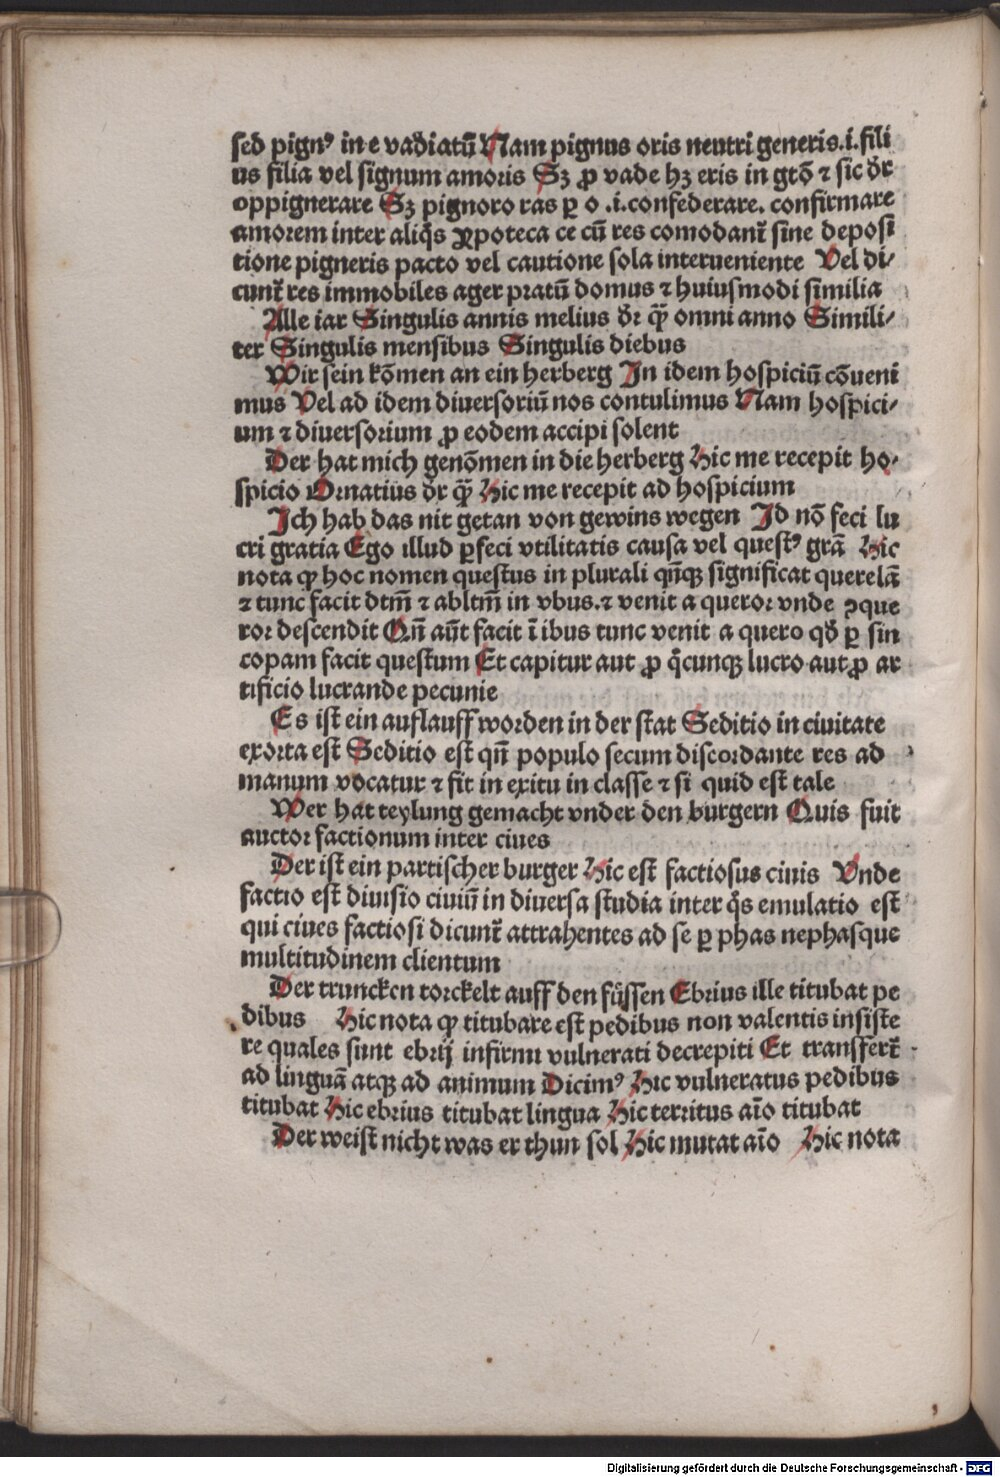 sed pignꝰ in e vadiatū Nam pignus oris neutri generis .i. fili
us filia vel signum amoris Sꝫ ꝓ vade hꝫ eris in gtō ⁊ sic dr̄
oppignerare Sꝫ pignoro ras ꝑ o .i. confederare. confirmare
amorem inter aliq̄s ypoteca ce cū res comodant᷑ sine deposi
tione pigneris pacto vel cautione sola interueniente Vel di/
cunt᷑ res immobiles ager pratū domus ⁊ huiusmodi similia
Alle iar Singulis annis melius dr̄ qᷓ omni anno Simili/
ter Singulis mensibus Singulis diebus
Wir sein kōmen an ein herberg In idem hospiciū cōueni
mus Vel ad idem diuersoriū nos contulimus Nam hospici/
um ⁊ diuersorium ꝓ eodem accipi solent
Der hat mich genōmen in die herberg Hic me recepit ho/
spicio Ornatius dr̄ qᷓ Hic me recepit ad hospicium
Ich hab das nit getan von gewins wegen Id nō feci lu
cri gratia Ego illud ꝑfeci vtilitatis causa vel questꝰ grā Hic
nota ꝙ hoc nomen questus in plurali qn̄qꝫ significat querelā
⁊ tunc facit dtm̄ ⁊ abltm̄ in vbus. ⁊ venit a queror vnde ꝯque
ror descendit Qn̄ aūt facit ī ibus tunc venit a quero qđ ꝑ sin
copam facit questum Et capitur aut ꝓ q̄cunqꝫ lucro aut ꝓ ar
tificio lucrande pecunie
Es ist ein aufflauff worden in der stat Seditio in ciuitate
exorta est Seditio est qn̄ populo secum discordante res ad
manum vocatur ⁊ fit in exitu in classe ⁊ si quid est tale
Wer hat teylung gemacht vnder den burgern Quis fuit
auctor factionum inter ciues
Der ist ein partischer burger Hic est factiosus ciuis Vnde
factio est diuisio ciuiū in diuersa studia inter q̄s emulatio est
qui ciues factiosi dicunt᷑ attrahentes ad se ꝑ phas nephasque
multitudinem clientum
Der truncken torckelt auff den füssen Ebrius ille titubat pe
dibus Hic nota ꝙ titubare est pedibus non valentis insiste
re quales sunt ebrij infirmi vulnerati decrepiti Et transfert᷑
ad linguā atqꝫ ad animum Dicimꝰ Hic vulneratus pedibus
titubat Hic ebrius titubat lingua Hic territus aīo titubat
Der weist nicht was er thun sol Hic mutat aīo Hic nota
Digitalisierung gefördert durch die Deutsche Forschungsgemeinschaft - DFG